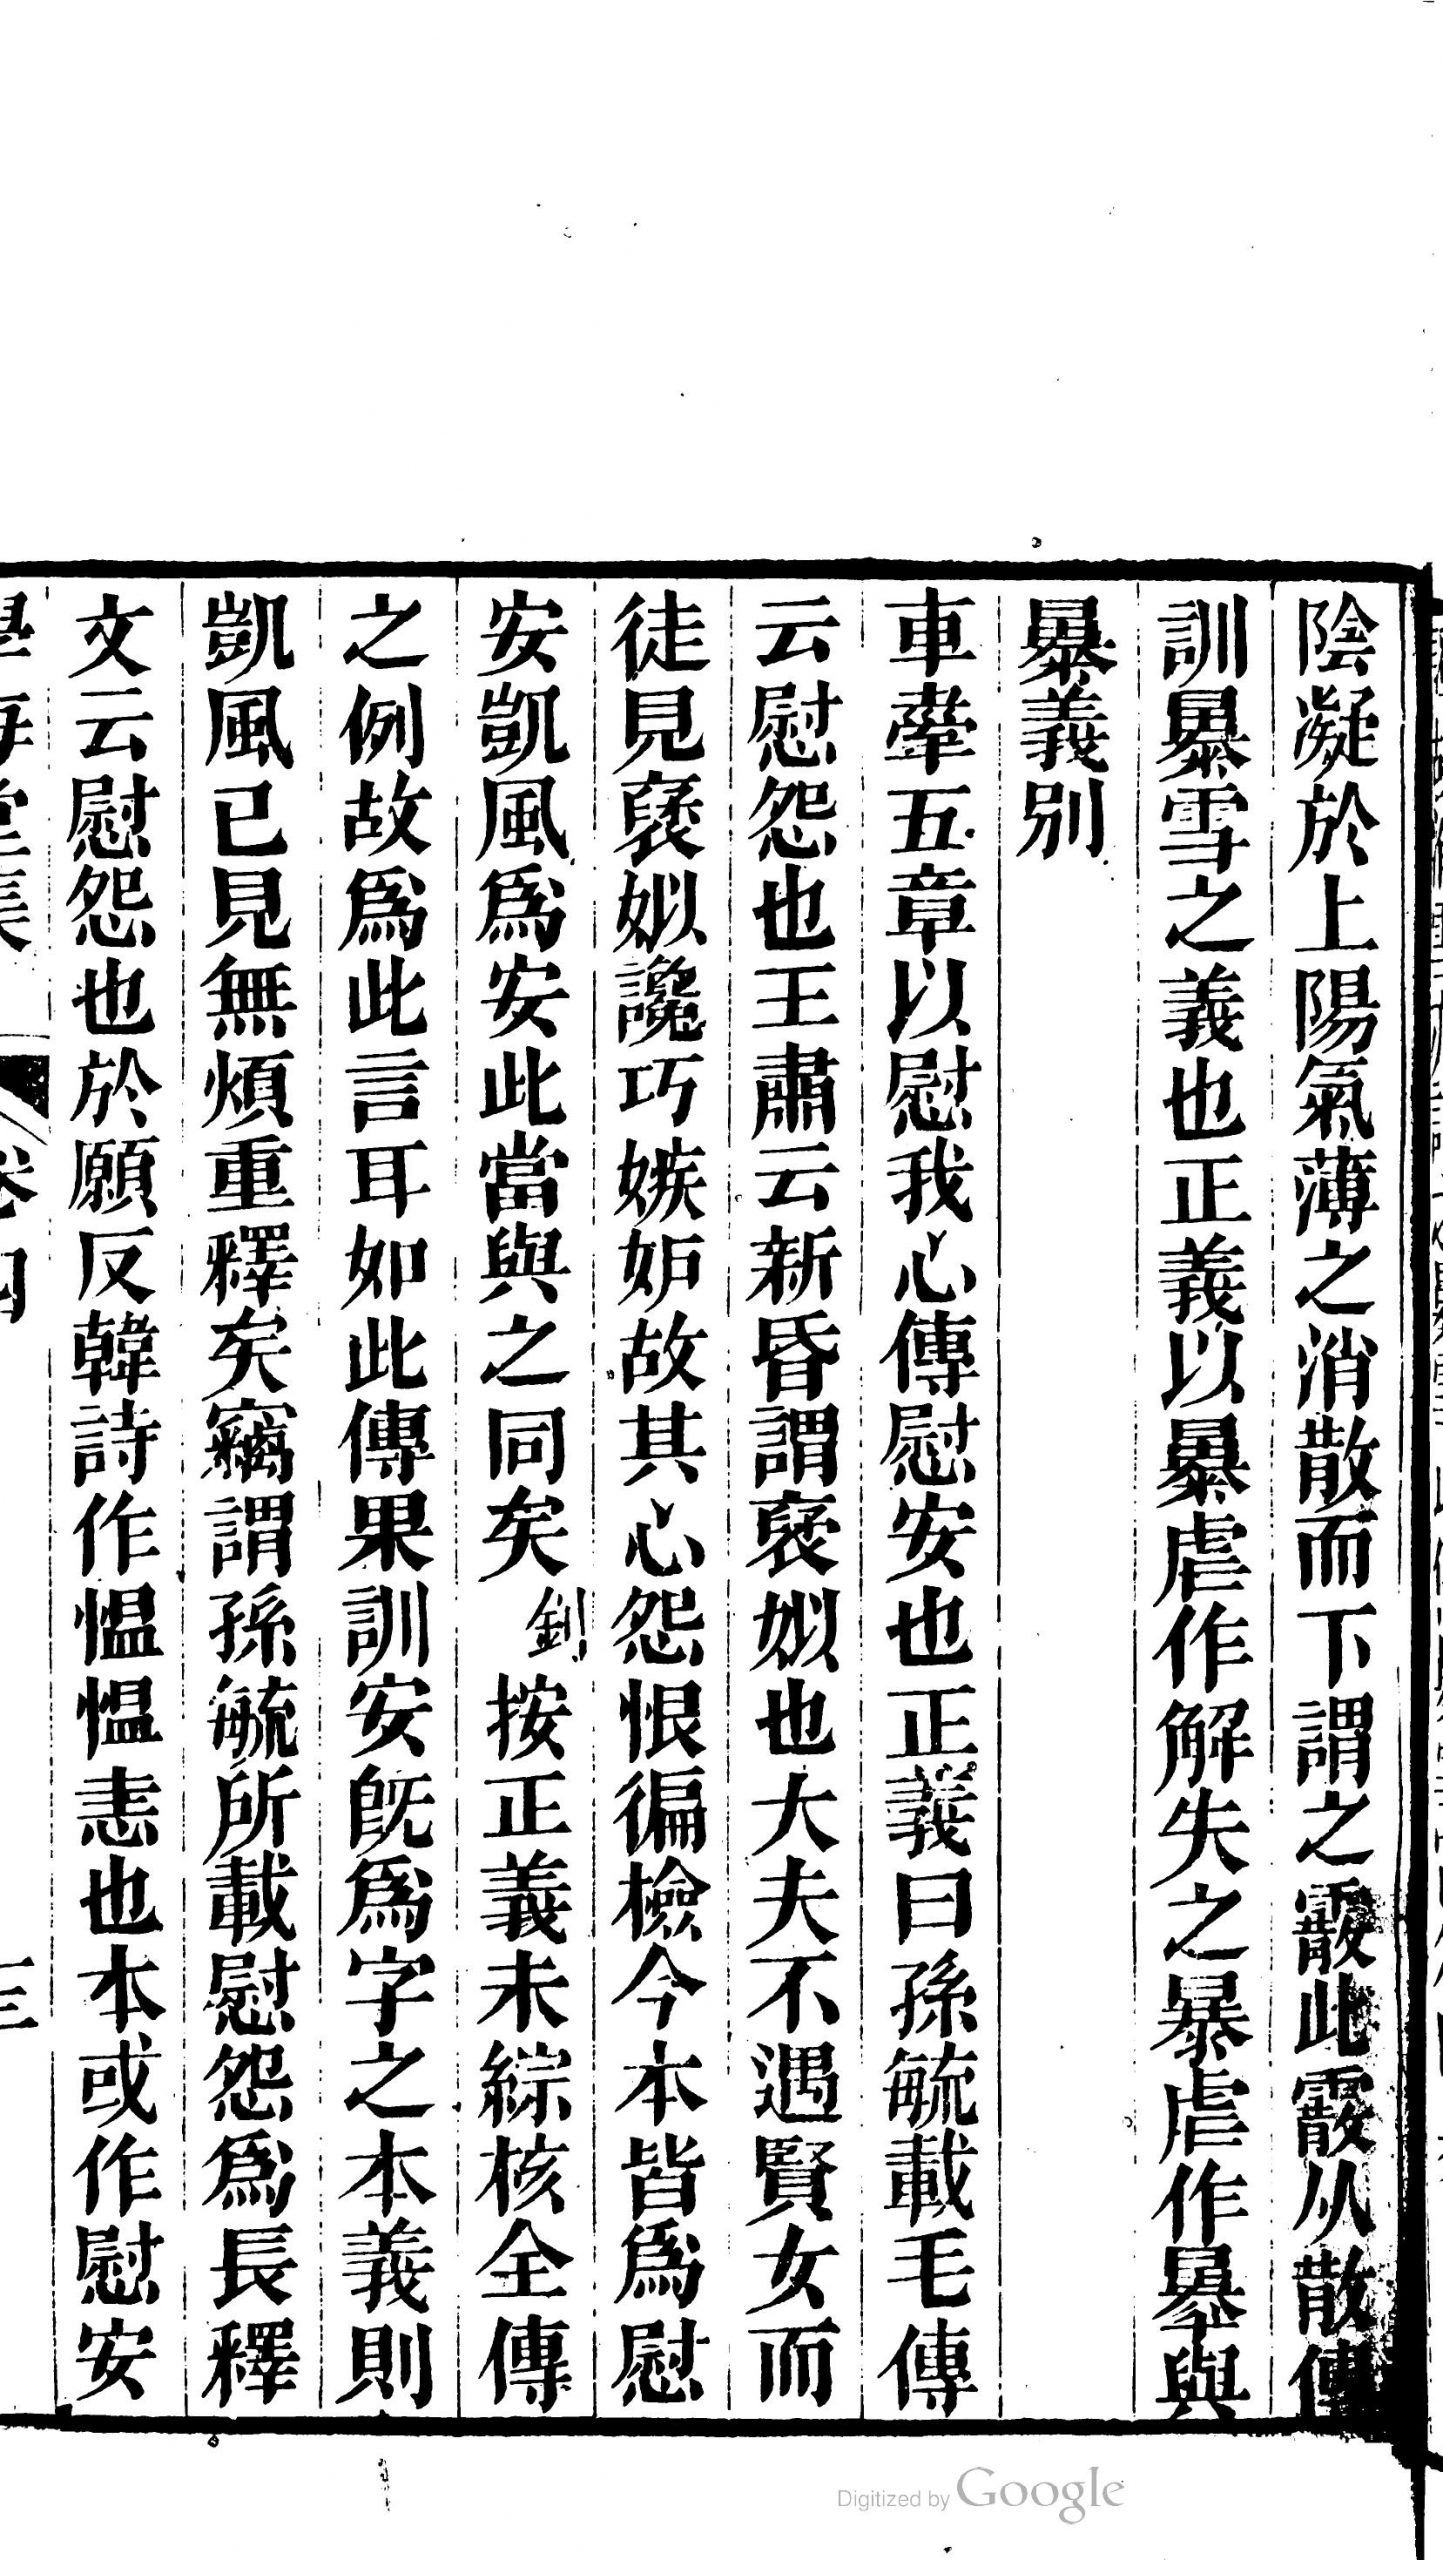 陰凝於上陽氣薄之消散而下謂之霰此霰从散傳
訓暴雪之義也正義以暴虐作解失之暴虐作㬥與
暴義別
車舝五章以慰我心傳慰安也正義曰孫毓載毛傳
云慰怨也王肅云新昏謂褒姒也大夫不遇賢女而
徒見褒姒讒巧嫉妒故其心怨恨徧檢今本皆為慰
安凱風為安此當與之同矣釗按正義未綜核全傳
之例故為此言耳如此傳果訓安旣為字之本義則
凱風已見無煩重釋矣竊謂孫毓所載慰怨為長釋
文云慰怨也於願反韓詩作愠愠恚也本或作慰安
學海堂集 卷四 三
Digitized by Google